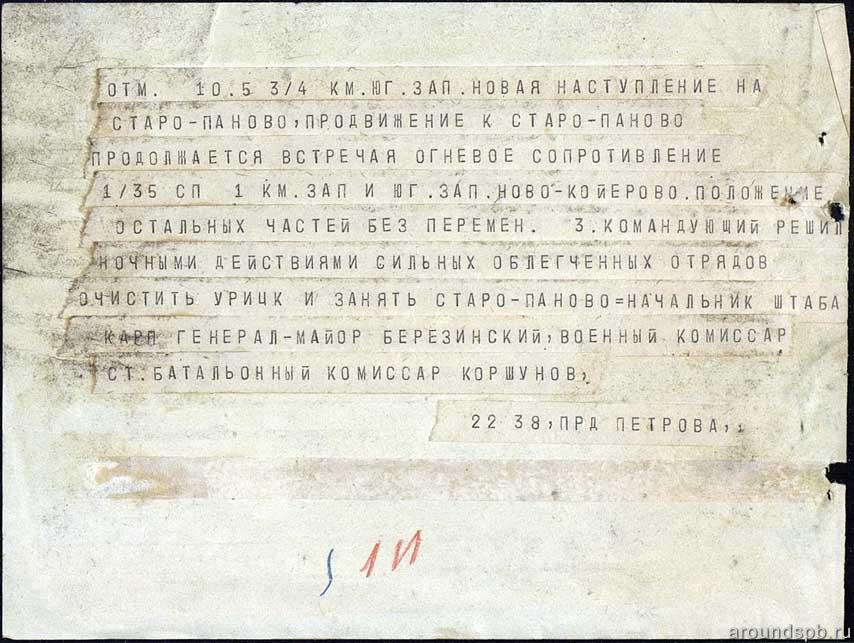 ОТМ. 10.5 3/4 КМ.ЮГ.ЗАП.НОВАЯ НАСТУПЛЕНИЕ НА
СТАРО-ПАНОВО,ПРОДВИЖЕНИЕ К СТАРО-ПАНОВО
ПРОДОЛЖАЕТСЯ ВСТРЕЧАЯ ОГНЕВОЕ СОПРОТИВЛЕНИЕ
1/35 СП 1 КМ.ЗАП И ЮГ.ЗАП.НОВО-КОЙЕРОВО.ПОЛОЖЕНИЕ
ОСТАЛЬНЫХ ЧАСТЕЙ БЕЗ ПЕРЕМЕН. 3.КОМАНДУЮЩИЙ РЕШИЛ
НОЧНЫМИ ДЕЙСТВИЯМИ СИЛЬНЫХ ОБЛЕГЧЕННЫХ ОТРЯДОВ
ОЧИСТИТЬ УРИЦК И ЗАНЯТЬ СТАРО-ПАНОВО=НАЧАЛЬНИК ШТАБА
КАРП ГЕНЕРАЛ-МАЙОР БЕРЕЗИНСКИЙ,ВОЕННЫЙ КОМИССАР
СТ.БАТАЛЬОННЫЙ КОМИССАР КОРШУНОВ,
22 38,ПРД ПЕТРОВА,
aroundspb.ru